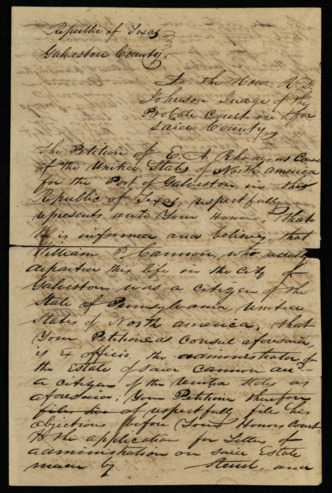 Republic of Texas
Galveston County
To the Hon. R. D.
Johnson Judge of the
Probate Court in & for
Said County
The Petition of E. A. Rhodes as Consul
of the United States of North America
for the Port of Galveston in the
Republic of Texas respectfully
represents unto Your Honor, that
he is informed and believes that
William P. Cannon, who recently
departed this life in the City of
Galveston was a citizen of the
State of Pennsylvania, United
States of North America, that
Your Petitioner as Consul aforesaid,
is ex officio the administrator of
the Estate of said Cannon
a citizen of the United States as
aforesaid. Your Petitioner therefore
respectfully file his
objections before Your Honors Court
to the application for Letters of
administration on said Estate
made by and